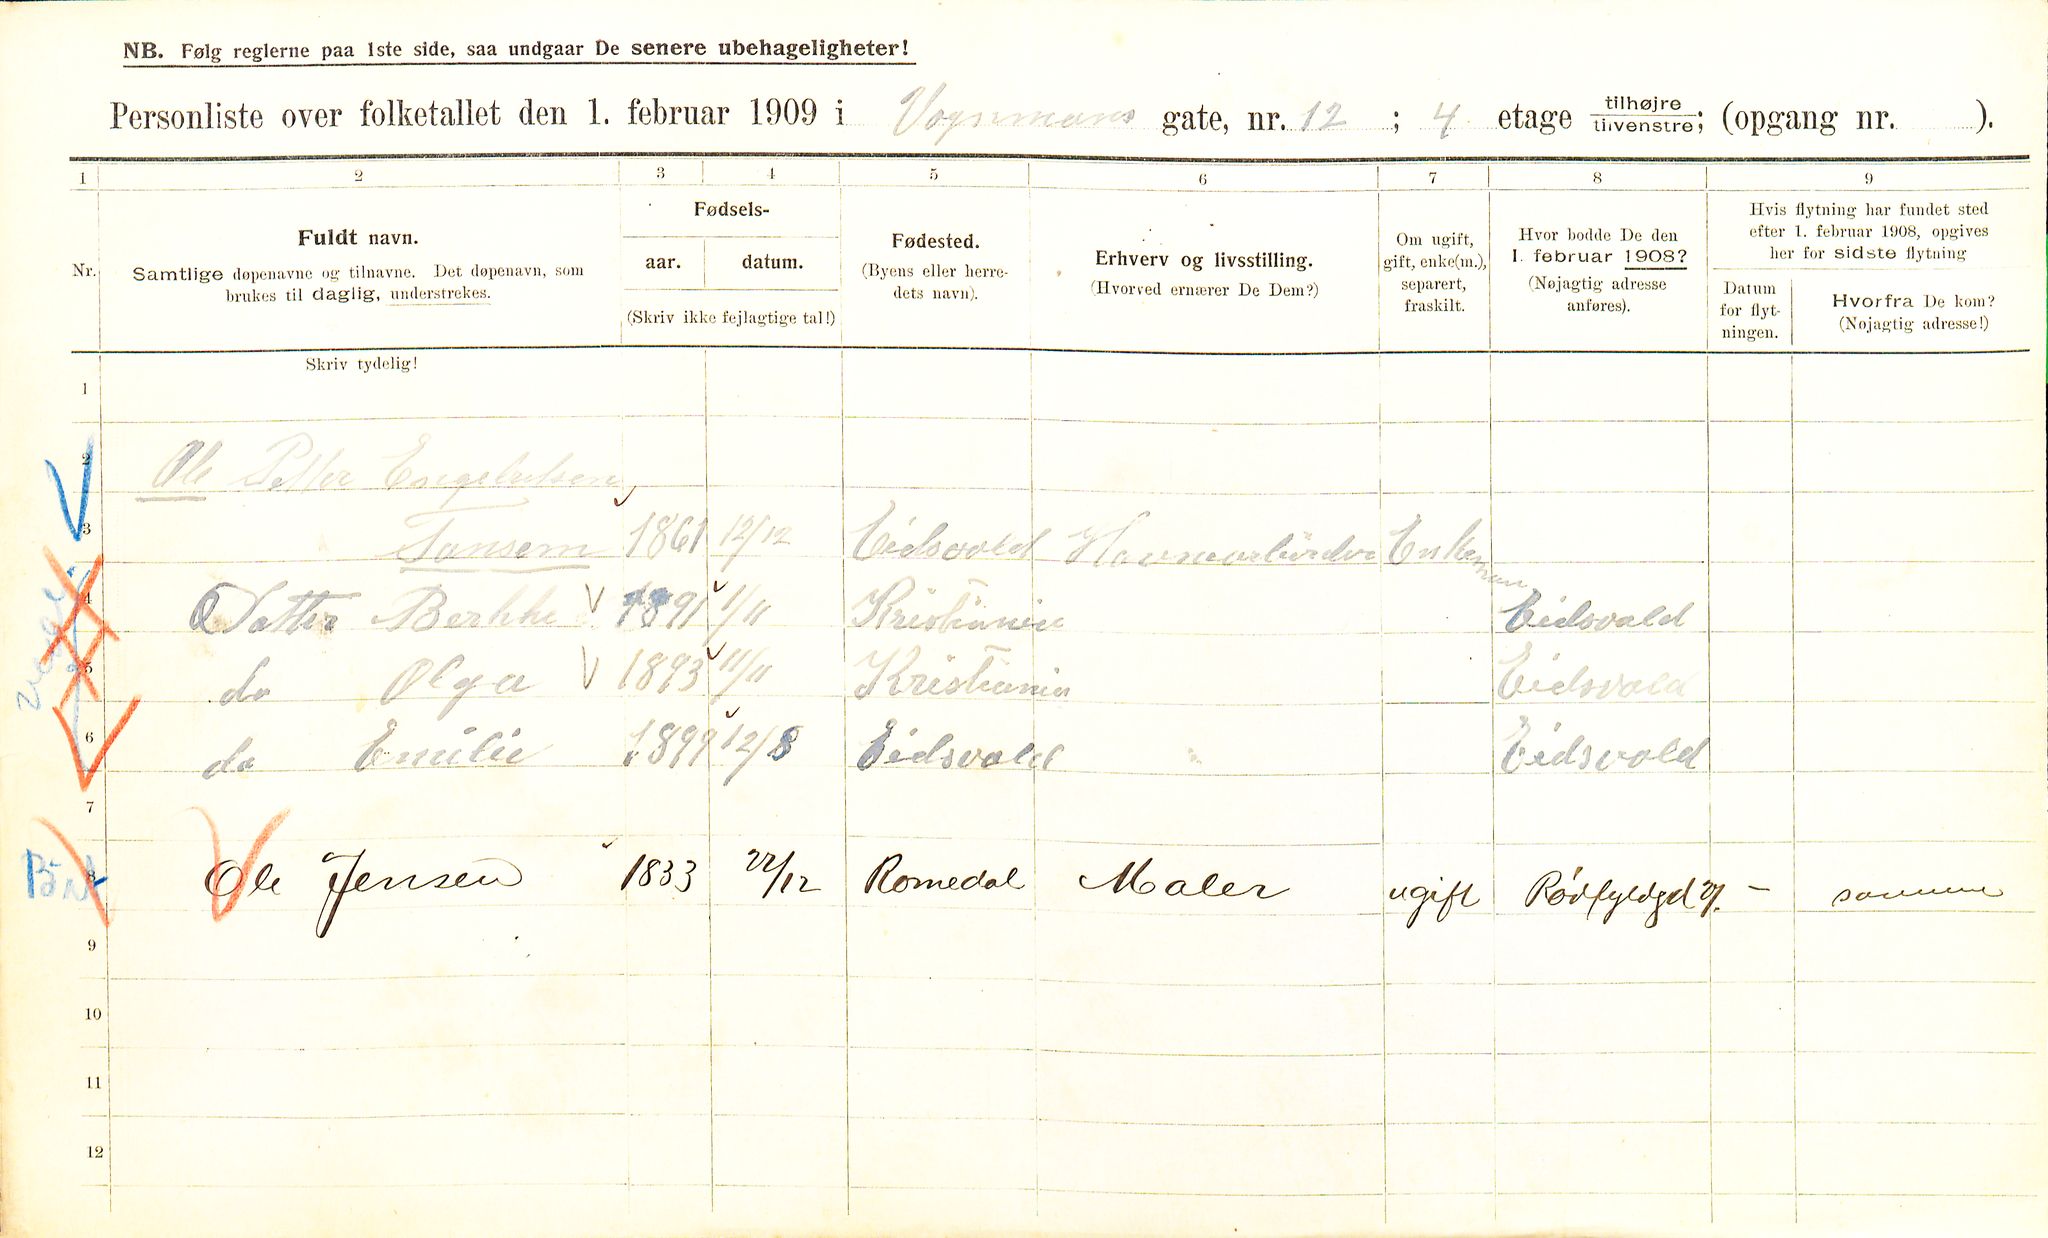 NB. Følg reglerne paa 1ste side, saa undgaar De senere ubehageligheter!
Personliste over folketallet den 1. februar 1909 i Vognmans gate, nr. 12 ; 4 etage tilhøjre/tilvenstre; (opgang nr. ).
1 2 3 4 5 6 7 8 9
Nr.
Fuldt navn.
Samtlige døpenavne og tilnavne. Det døpenavn, som
brukes til daglig, understrekes.
Fødsels-
aar. datum.
(Skriv ikke fejlagtige tal!)
Fødested.
(Byens eller herre-
dets navn).
Erhverv og livsstilling.
(Hvorved ernærer De Dem?)
Om ugift,
gift, enke(m.),
separert,
fraskilt.
Hvor bodde De den
1. februar 1908?
(Nøjagtig adresse
anføres).
Hvis flytning har fundet sted
efter 1. februar 1908, opgives
her for sidste flytning
Datum
for flyt-
ningen.
Hvorfra De kom?
(Nøjagtig adresse!)
Skriv tydelig!
1
2 Ole Petter Engebretsen
3 1861 12/12 Eidsvold Enkeman
4 Datter 1891 1/11 Kristiania Eidsvald
5 do Olga 1893 11/11 Kristiania Eidsvald
6 do Emilie 1899 12/8 Eidsvold Eidsvold
7
8 Ole Jensen 1833 22/12 Romedal Maler ugift – samme
9
10
11
12